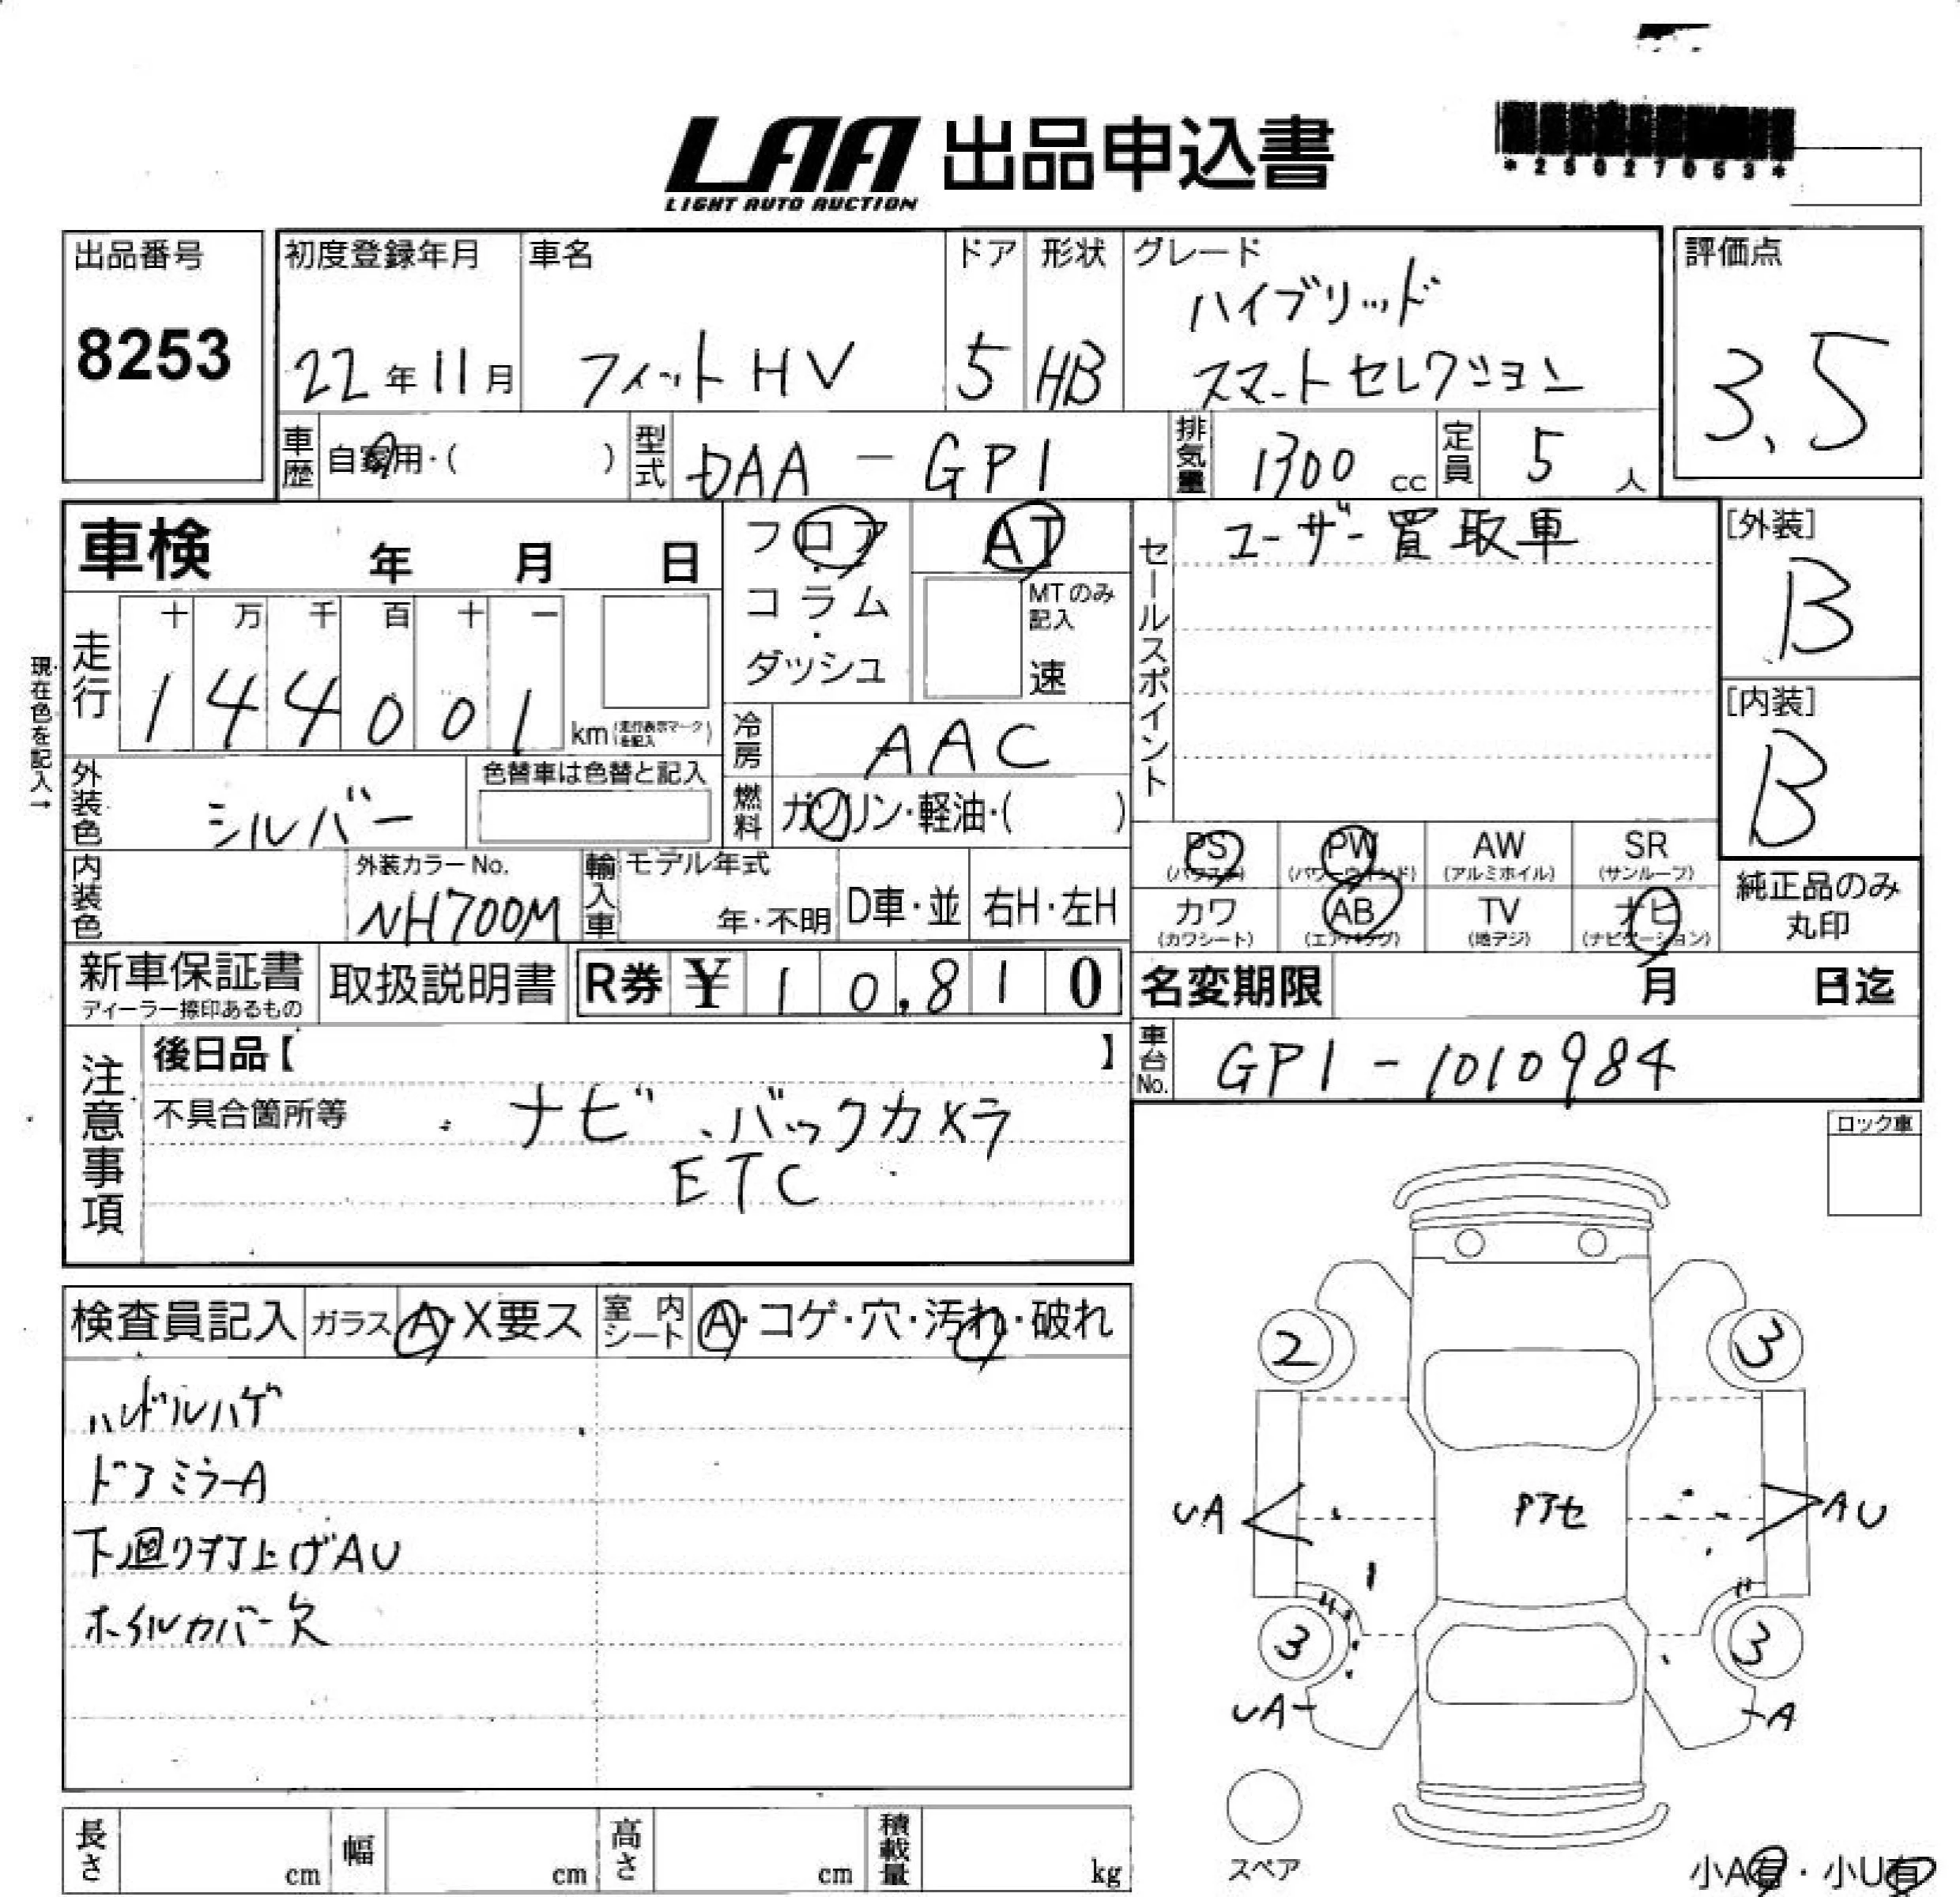 LAA 出品申込書
LIGHT AUTO AUCTION
*25027053*
出品番号
8253
初度登録年月
22年11月
車名
フィットHV
ドア
5
形状
HB
グレード
ハイブリッド
スマートセレクション
評価点
3.5
車歴
自家用・( )
型式
DAA-GP1
排気量
1300 cc
定員
5人
車検 年 月 日
フロア・コラム・ダッシュ
AT
MTのみ記入
速
セールスポイント
ユーザー買取車
[外装]
B
[内装]
B
現在色を記入→
走行
十 万 千 百 十 一
1 4 4 0 0 1 km (走行表示マークを記入)
冷房
AAC
外装色
シルバー
色替車は色替と記入
燃料
ガソリン・軽油・( )
PS AW SR
PW
(パワーウインド) (アルミホイル) (サンルーフ)
カワ AB TV ナビ
(カワシート) (エアバッグ) (地デジ) (ナビゲーション)
純正品のみ
丸印
内装色
外装カラーNo.
NH700M
輸入車
モデル年式
年・不明
D車・並
右H・左H
新車保証書
ディーラー捺印あるもの
取扱説明書
R券 ¥ 10,810
名変期限 月 日迄
注意事項
後日品【 】
車台No.
GP1-1010984
不具合箇所等
ナビ、バックカメラ
ETC
ロック車
検査員記入
ガラス A・X要ス
室内シート A・コゲ・穴・汚れ・破れ
ハンドルハゲ
ドアミラーA
下廻りヲ丁上げAU
ホイルカバー欠
2 3
UA AU
3 3
UA A
スペア
小A有・小U有
長さ cm
幅 cm
高さ cm
積載量 kg